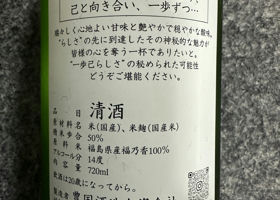 己と向き合い、一歩ずつ…
瑞々しく心地よい甘味と艶やかで穏やかな酸味。
"らしさ"の先に到達したその神秘的な魅力が
皆様の心を奪う一杯でありたいと、
"一歩己らしさ"の秘められた可能性
どうぞご堪能ください。
品目 清酒
原材料名 米(国産)、米麹(国産米)
精米歩合 50%
原料米 福島県産福乃香100%
アルコール分 14度
内容量 720ml
飲酒は20歳になってから。
製造者 豊国酒造